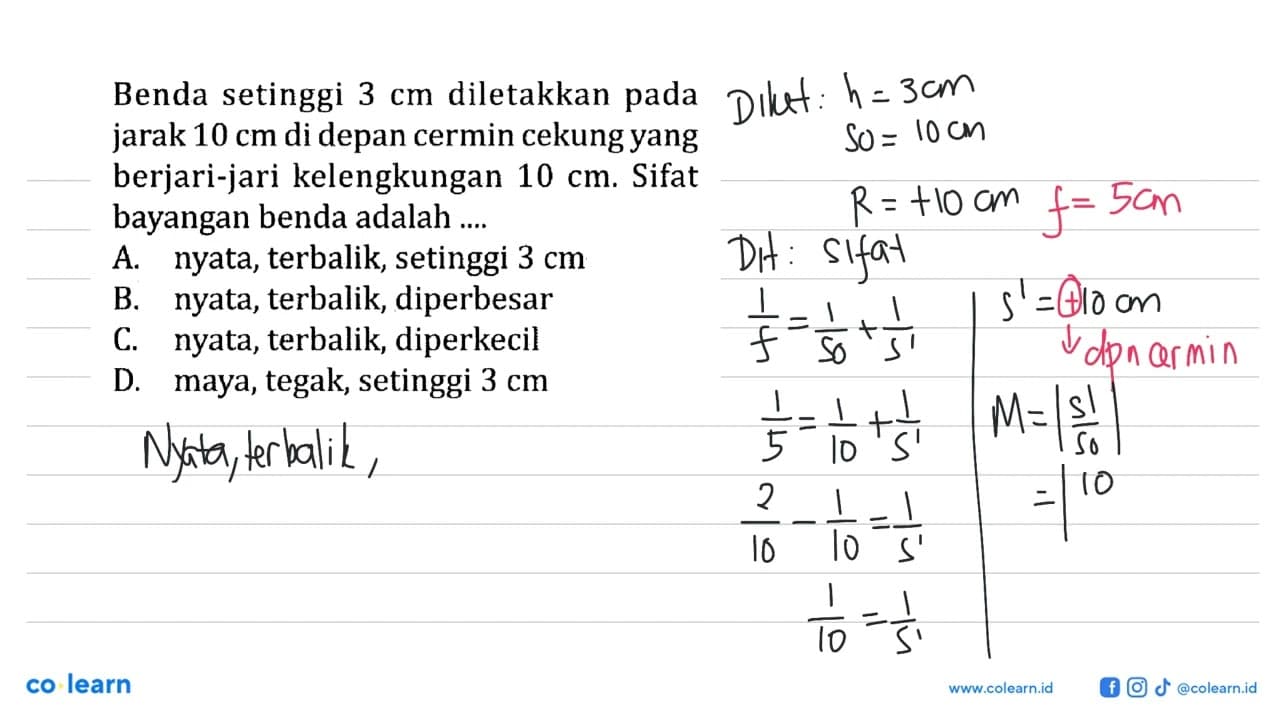 Benda setinggi 3 cm diletakkan pada
jarak 10 cm di depan cermin cekung yang
berjari-jari kelengkungan 10 cm. Sifat
bayangan benda adalah ....
A. nyata, terbalik, setinggi 3 cm
B. nyata, terbalik, diperbesar
C. nyata, terbalik, diperkecil
D. maya, tegak, setinggi 3 cm
Nyata, terbalik,
Diket: h = 3 cm
So = 10 cm
R = +10 cm f = 5 cm
Dit: sifat
1/f = 1/So + 1/S'
1/5 = 1/10 + 1/S'
2/10 - 1/10 = 1/S'
1/10 = 1/S'
S' = +10 cm
↓ dpn cermin
M = |S'/So|
= |10
co learn
www.colearn.id
@colearn.id